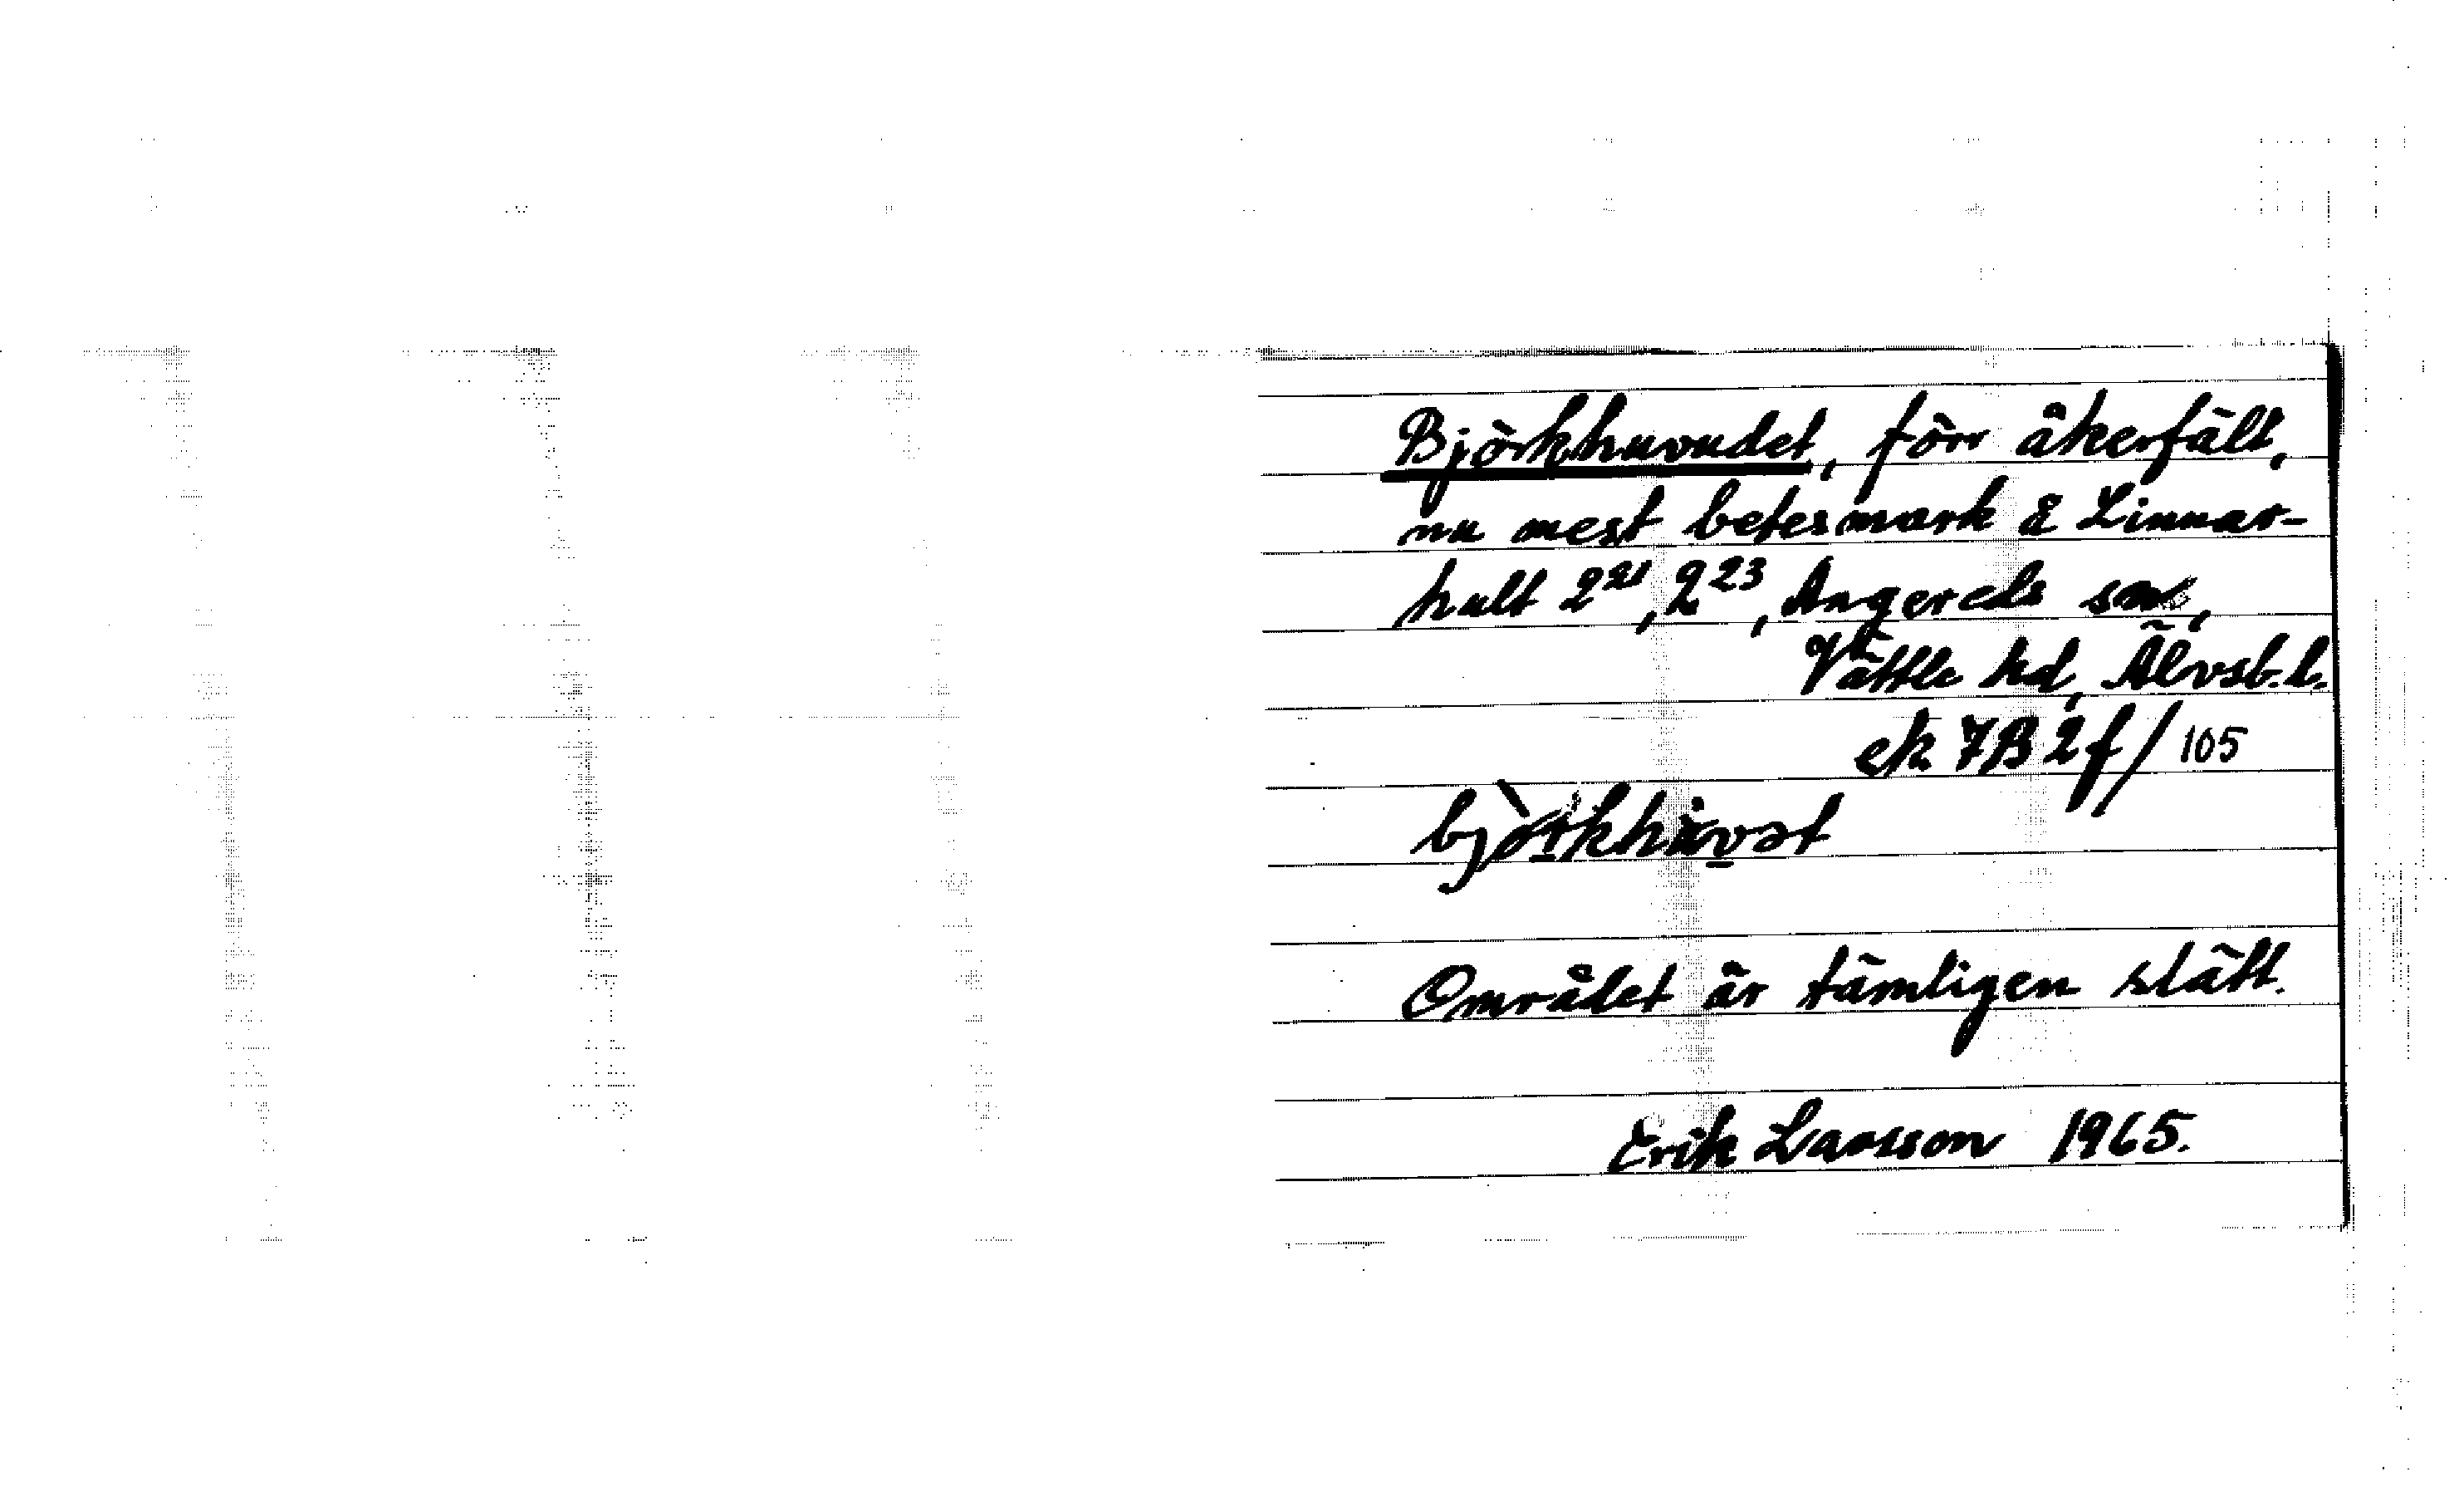 Björkhuvudet, förr åkerfält,
nu mest betesmark å Linnar-
hult 2²¹, 2²³, Angereds sn,
Vättle hd, Älvsb. l.
ek 7B 2f/105
bjò̀rkhùvət
Området är tämligen slätt.
Erik Larsson 1965.